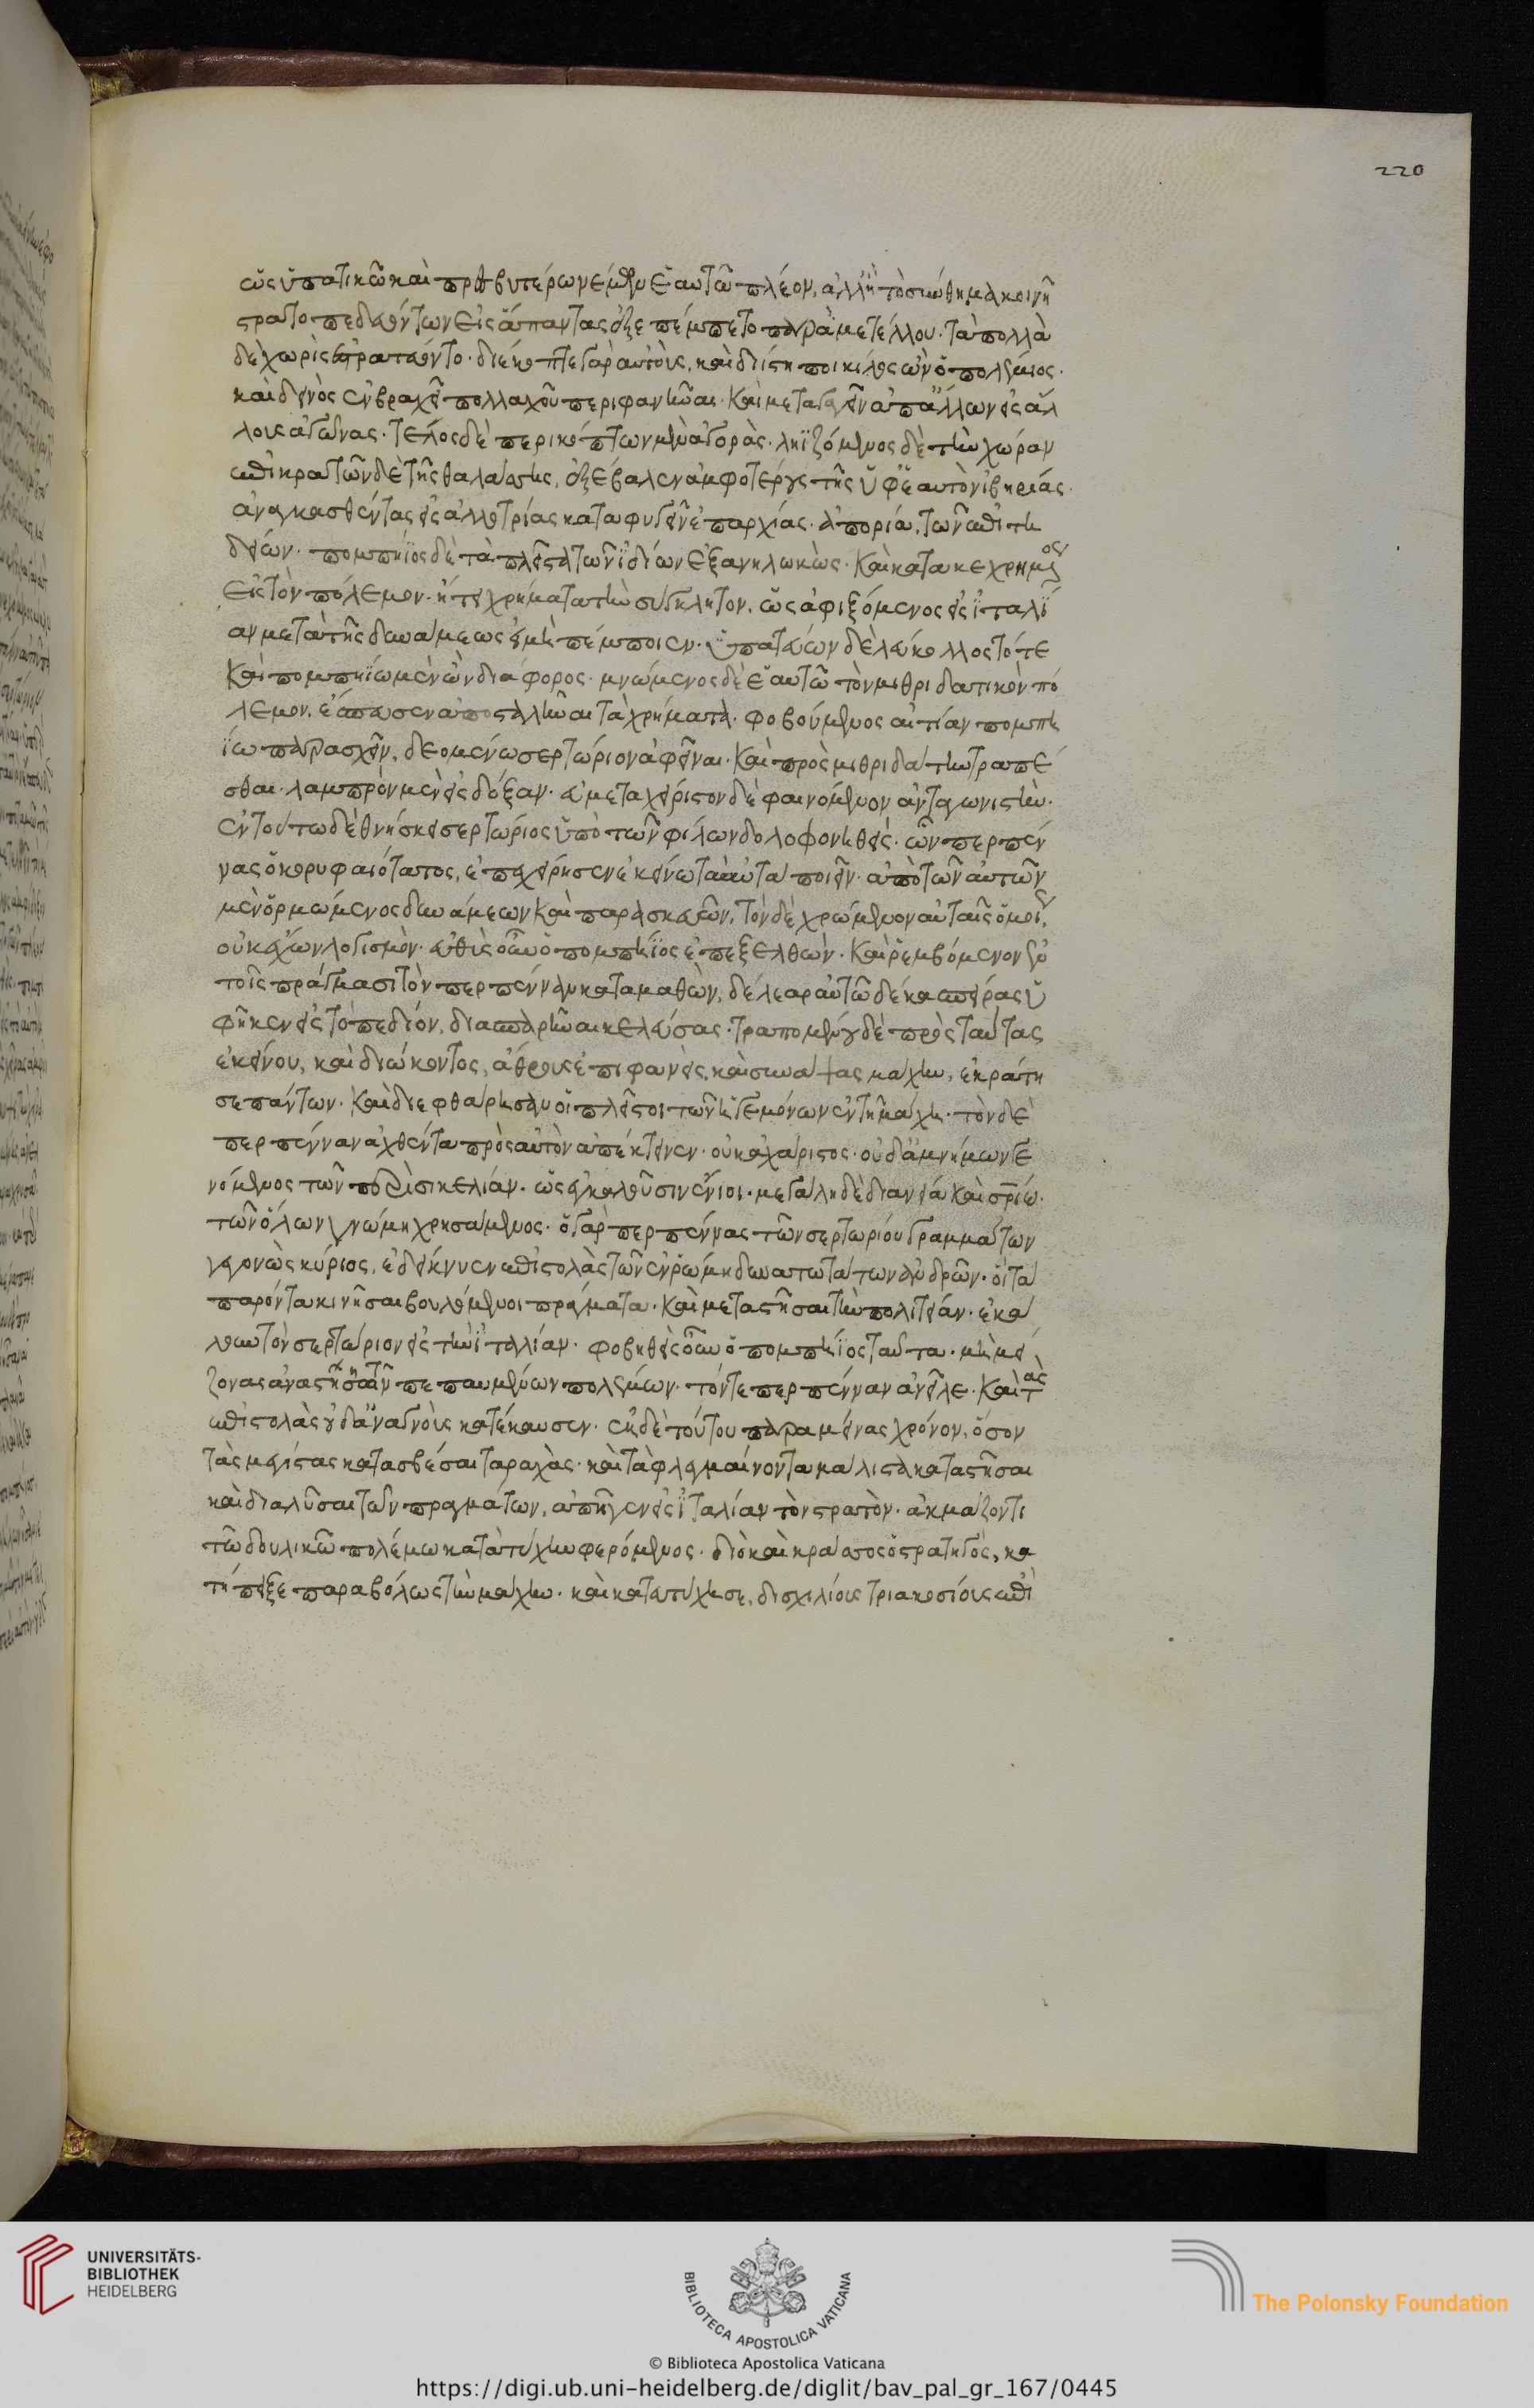 ὡς ὑπατικῶ καὶ πρεσβυτέρω νέμων ἑαυτῶ πλέον, ἀλλ' ἢ τὸ σύνθημα κοινῆ
στρατοπεδευόντων εἰς ἅπαντας ἐξεπέμπετο παρὰ μετέλλου· τὰ πολλὰ
δὲ χωρὶς ἐστρατεύοντο· διέκοπτε γὰρ αὐτοὺς, καὶ διίστη ποικίλος ὢν ὁ πολέμιος·
καὶ δεινὸς ἐν βραχεῖ πολλαχοῦ περιφανῆναι· καὶ μεταγαγεῖν ἀπ' ἄλλων εἰς ἄλ
λους ἀγῶνας· τέλος δὲ περικόπτων μὲν ἀγορὰς· ληϊζόμενος δὲ τὴν χώραν
ἐπικρατῶν δὲ τῆς θαλάττης, ἐξέβαλεν ἀμφοτέρους τῆς ὑφ' ἑαυτὸν ἰβηρίας·
ἀναγκασθέντας εἰς ἀλλοτρίας καταφυγεῖν ἐπαρχίας· ἀπορία, τῶν ἐπιτη
δείων· πομπήϊος δὲ τὰ πλεῖστα τῶν ἰδίων ἐξανηλωκὼς· καὶ κατακεχρημένος
εἰς τὸν πόλεμον· ἤτει χρήματα τὴν σύγκλητον, ὡς ἀφιξόμενος εἰς ἰταλί
αν μετὰ τῆς δυνάμεως εἰ μὴ πέμποιεν· ὑπατεύων δὲ λεύκολλος τότε
καὶ πομπηίω μὲν ὢν διάφορος· μνώμενος δὲ ἑαυτῶ τὸν μιθριδατικὸν πό
λεμον, ἔσπευσεν ἀποσταλῆναι τὰ χρήματα· φοβούμενος αἰτίαν πομπη
ίω παρασχεῖν, δεομένω σερτώριον ἀφεῖναι· καὶ πρὸς μιθριδάτην τραπέ
σθαι· λαμπρὸν μὲν εἰς δόξαν· εὐμεταχείριστον δὲ φαινόμενον ἀνταγωνιστήν·
ἐν τούτω δὲ θνήσκει σερτώριος ὑπὸ τῶν φίλων δολοφονηθείς· ὧν περπέν
νας ὁ κορυφαιότατος, ἐπεχείρησεν ἐκείνω ταὐτὰ ποιεῖν· ἀπὸ τῶν αὐτῶν
μὲν ὁρμώμενος δυνάμεων καὶ παρασκευῶν, τὸν δὲ χρώμενον αὐταῖς ὁμοίως
οὐκ ἔχων λογισμὸν· εὐθὺς οὖν ὁ πομπήϊος ἐπεξελθὼν· καὶ ῥεμβόμενον ἐν
τοῖς πράγμασι τὸν περπένναν καταμαθὼν, δέλεαρ αὐτῶ δέκα σπείρας ὑ
φῆκεν εἰς τὸ πεδίον, διασπαρῆναι κελεύσας· τραπομένου δὲ πρὸς ταύτας
ἐκείνου, καὶ διώκοντος, ἄθρους ἐπιφανείς, καὶ συνάψας μάχην, ἐκράτη
σε πάντων· καὶ διεφθάρησαν οἱ πλεῖστοι τῶν ἡγεμόνων ἐν τῆ μάχη· τὸν δὲ
περπένναν ἀχθέντα πρὸς αὐτὸν ἀπέκτεινεν· οὐκ ἀχάριστος· οὐδ' ἀμνήμων γε
νόμενος τῶν περὶ σικελίαν· ὡς ἐγκαλοῦσιν ἔνιοι· μεγάλη δὲ διανοία καὶ σωτηρίω
τῶν ὅλων γνώμη χρησάμενος· ὁ γὰρ περπέννας τῶν σερτωρίου γραμμάτων
γεγονὼς κύριος, ἐδείκνυεν ἐπιστολὰς τῶν ἐν ῥώμη δυνατωτάτων ἀνδρῶν· οἳ τὰ
παρόντα κινῆσαι βουλόμενοι πράγματα· καὶ μεταστῆσαι τὴν πολιτείαν· ἐκά
λουν τὸν σερτώριον εἰς τὴν ἰταλίαν· φοβηθεὶς οὖν ὁ πομπήϊος ταῦτα· μὴ μεί
ζονας ἀναστήση τῶν πεπαυμένων πολέμων· τόν τε περπένναν ἀνεῖλε· καὶ τὰς
ἐπιστολὰς οὐδ' ἀναγνοὺς κατέκαυσεν· ἐκ δὲ τούτου παραμείνας χρόνον, ὅσον
τὰς μεγίστας κατασβέσαι ταραχὰς· καὶ τὰ φλεγμαίνοντα μάλιστα καταστῆσαι
καὶ διαλῦσαι τῶν πραγμάτων, ἀπῆγεν εἰς ἰταλίαν τὸν στρατὸν· ἀκμάζοντι
τῶ δουλικῶ πολέμω κατὰ τύχην φερόμενος· διὸ καὶ κράσσος ὁ στρατηγὸς, κα
τήπειξε παραβόλως τὴν μάχην· καὶ κατευτύχησε, δισχιλίους τριακοσίους ἐπὶ
220
UNIVERSITÄTS-
BIBLIOTHEK
HEIDELBERG
BIBLIOTECA APOSTOLICA VATICANA
The Polonsky Foundation
© Biblioteca Apostolica Vaticana
https://digi.ub.uni-heidelberg.de/diglit/bav_pal_gr_167/0445